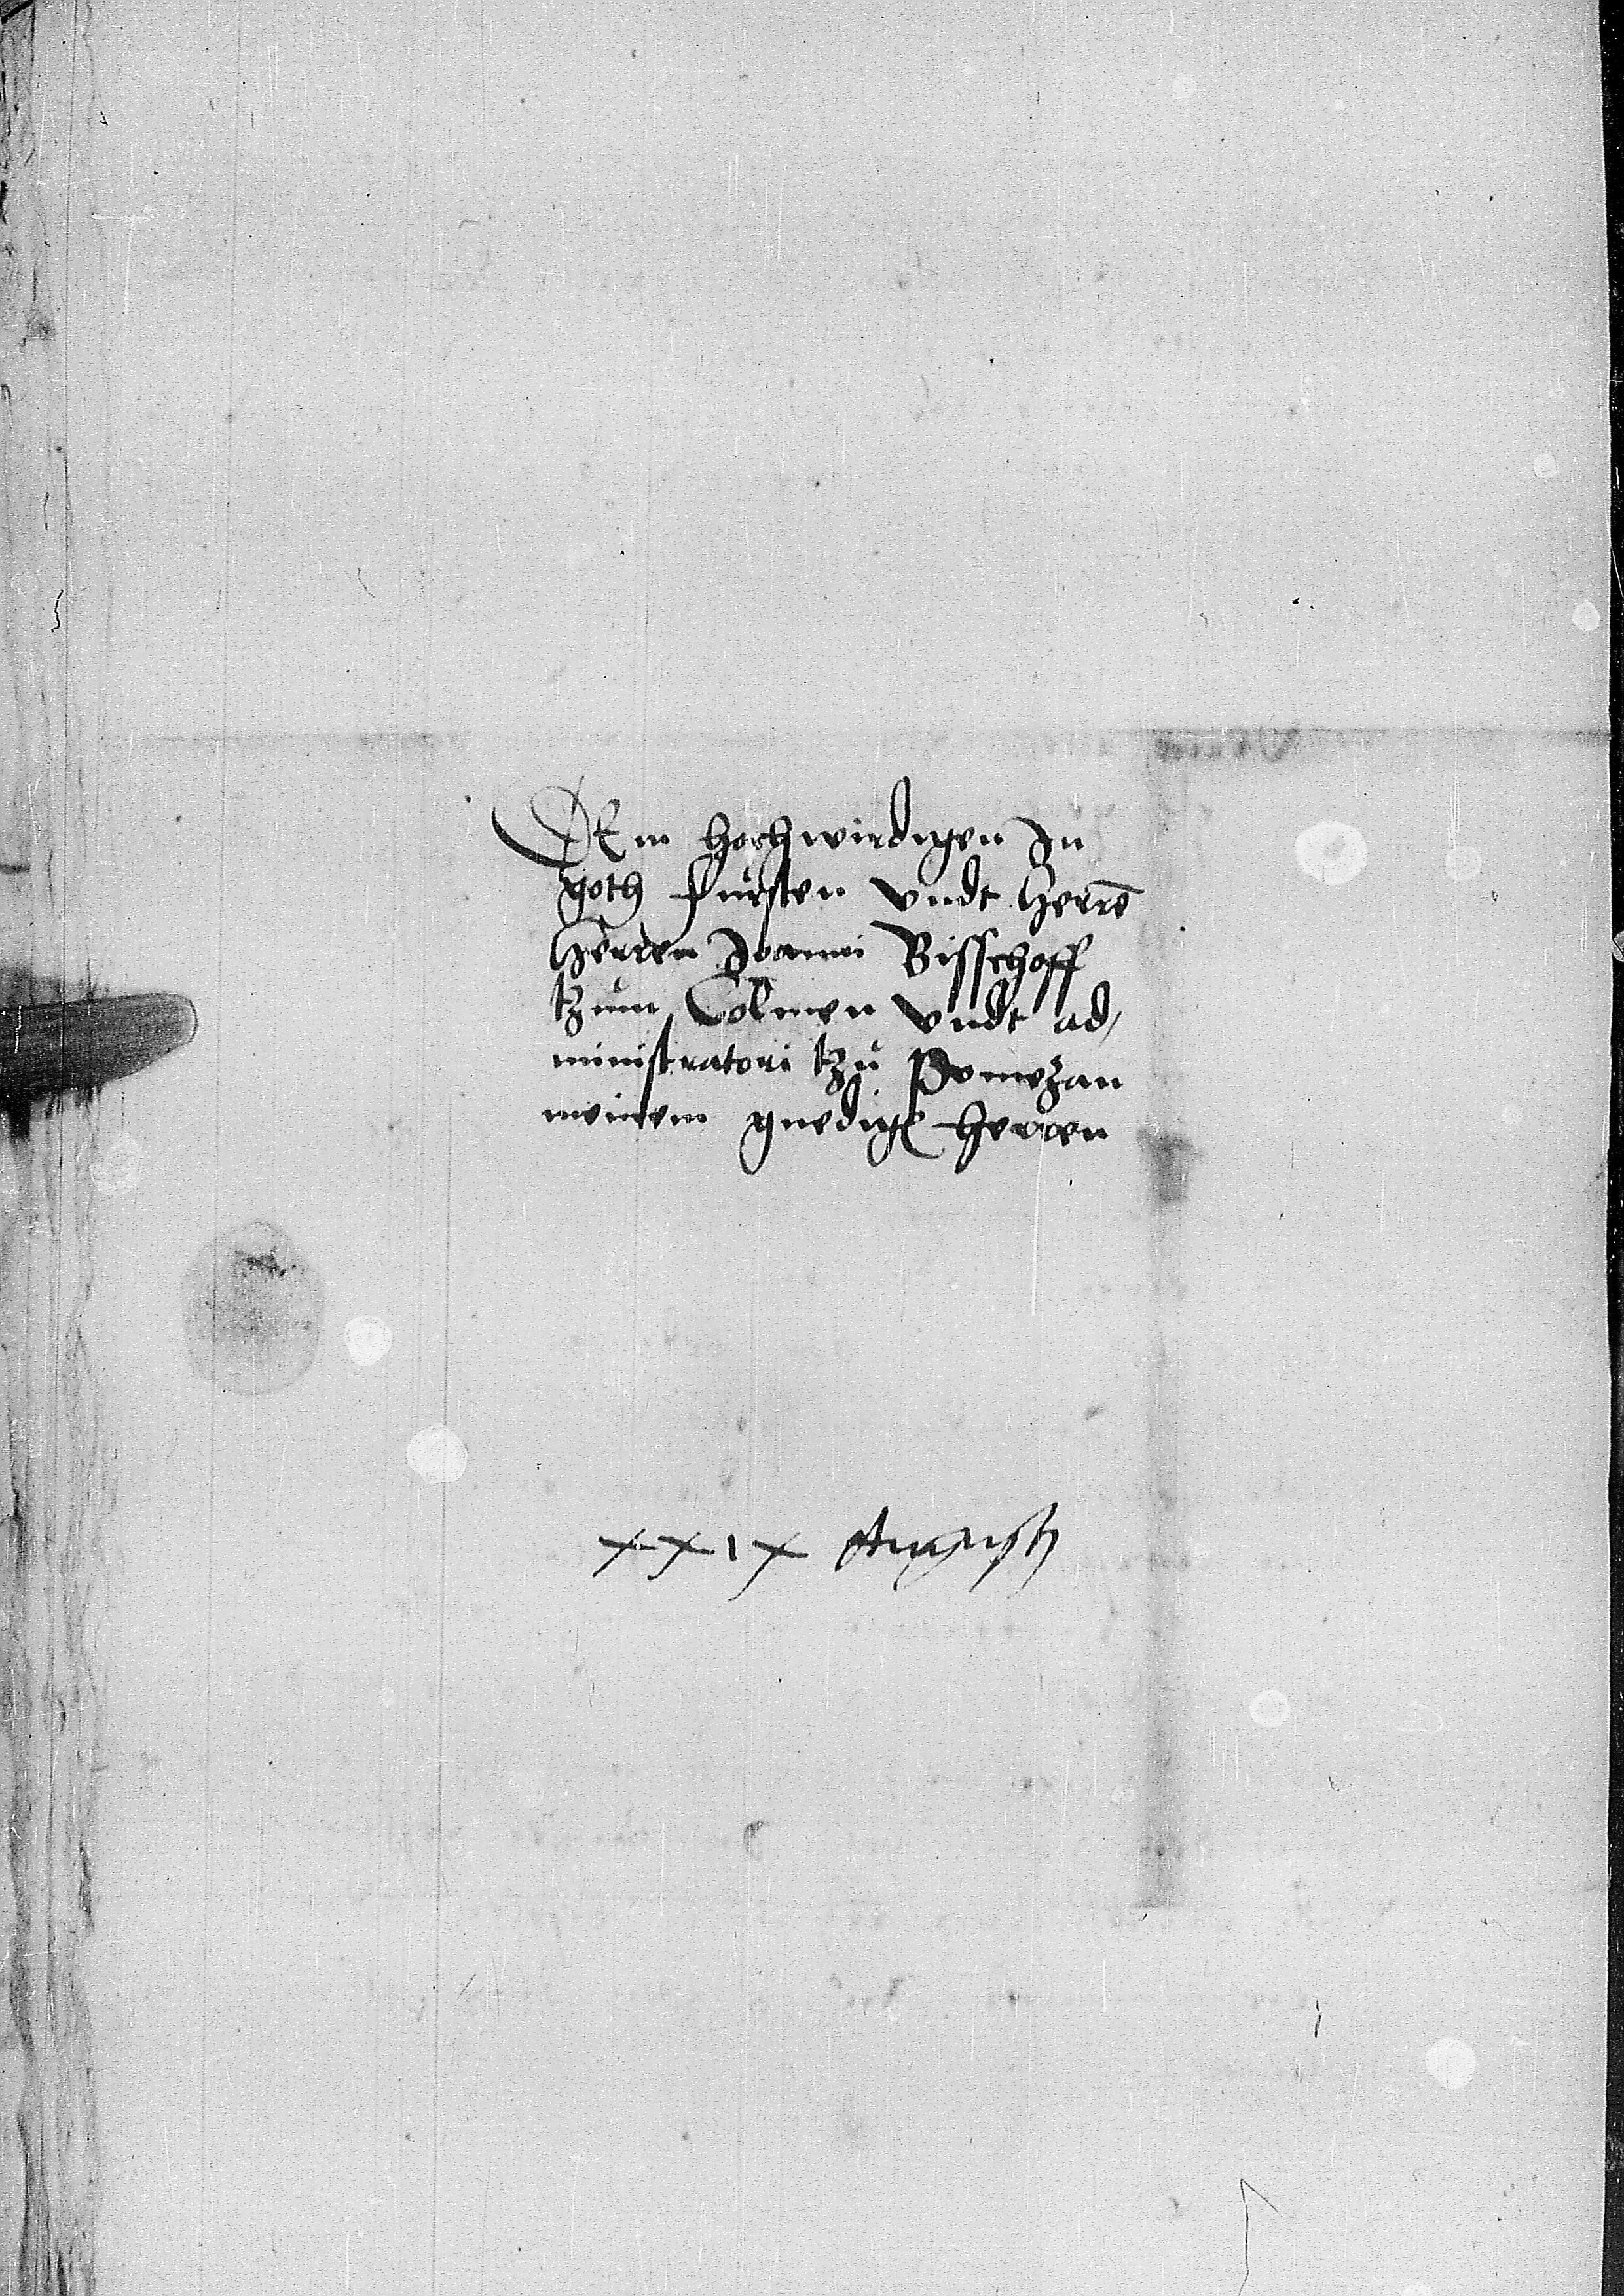 DEm hochwirdigen In
goth fursten vndt herrē
herren Joanni Bisschoff
tzum Colmen vndt ad/
ministratori tzu Pomezan
meinem gnedigē herren
xxix Augusti